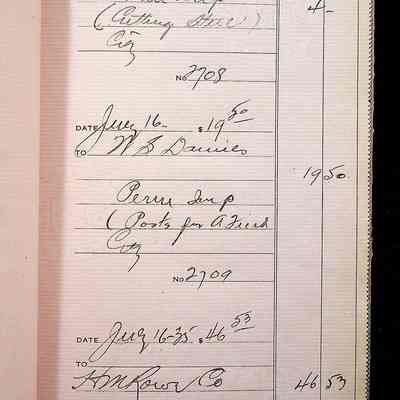 (Cutting Steel) 4-
City
No 2708
DATE July 16- $19 50
TO W S Davies
19 50
Perm Imp
(Posts for A Field
City
No 2709
DATE July 16-35 $46 53
TO
H M Rowe Co 46 53